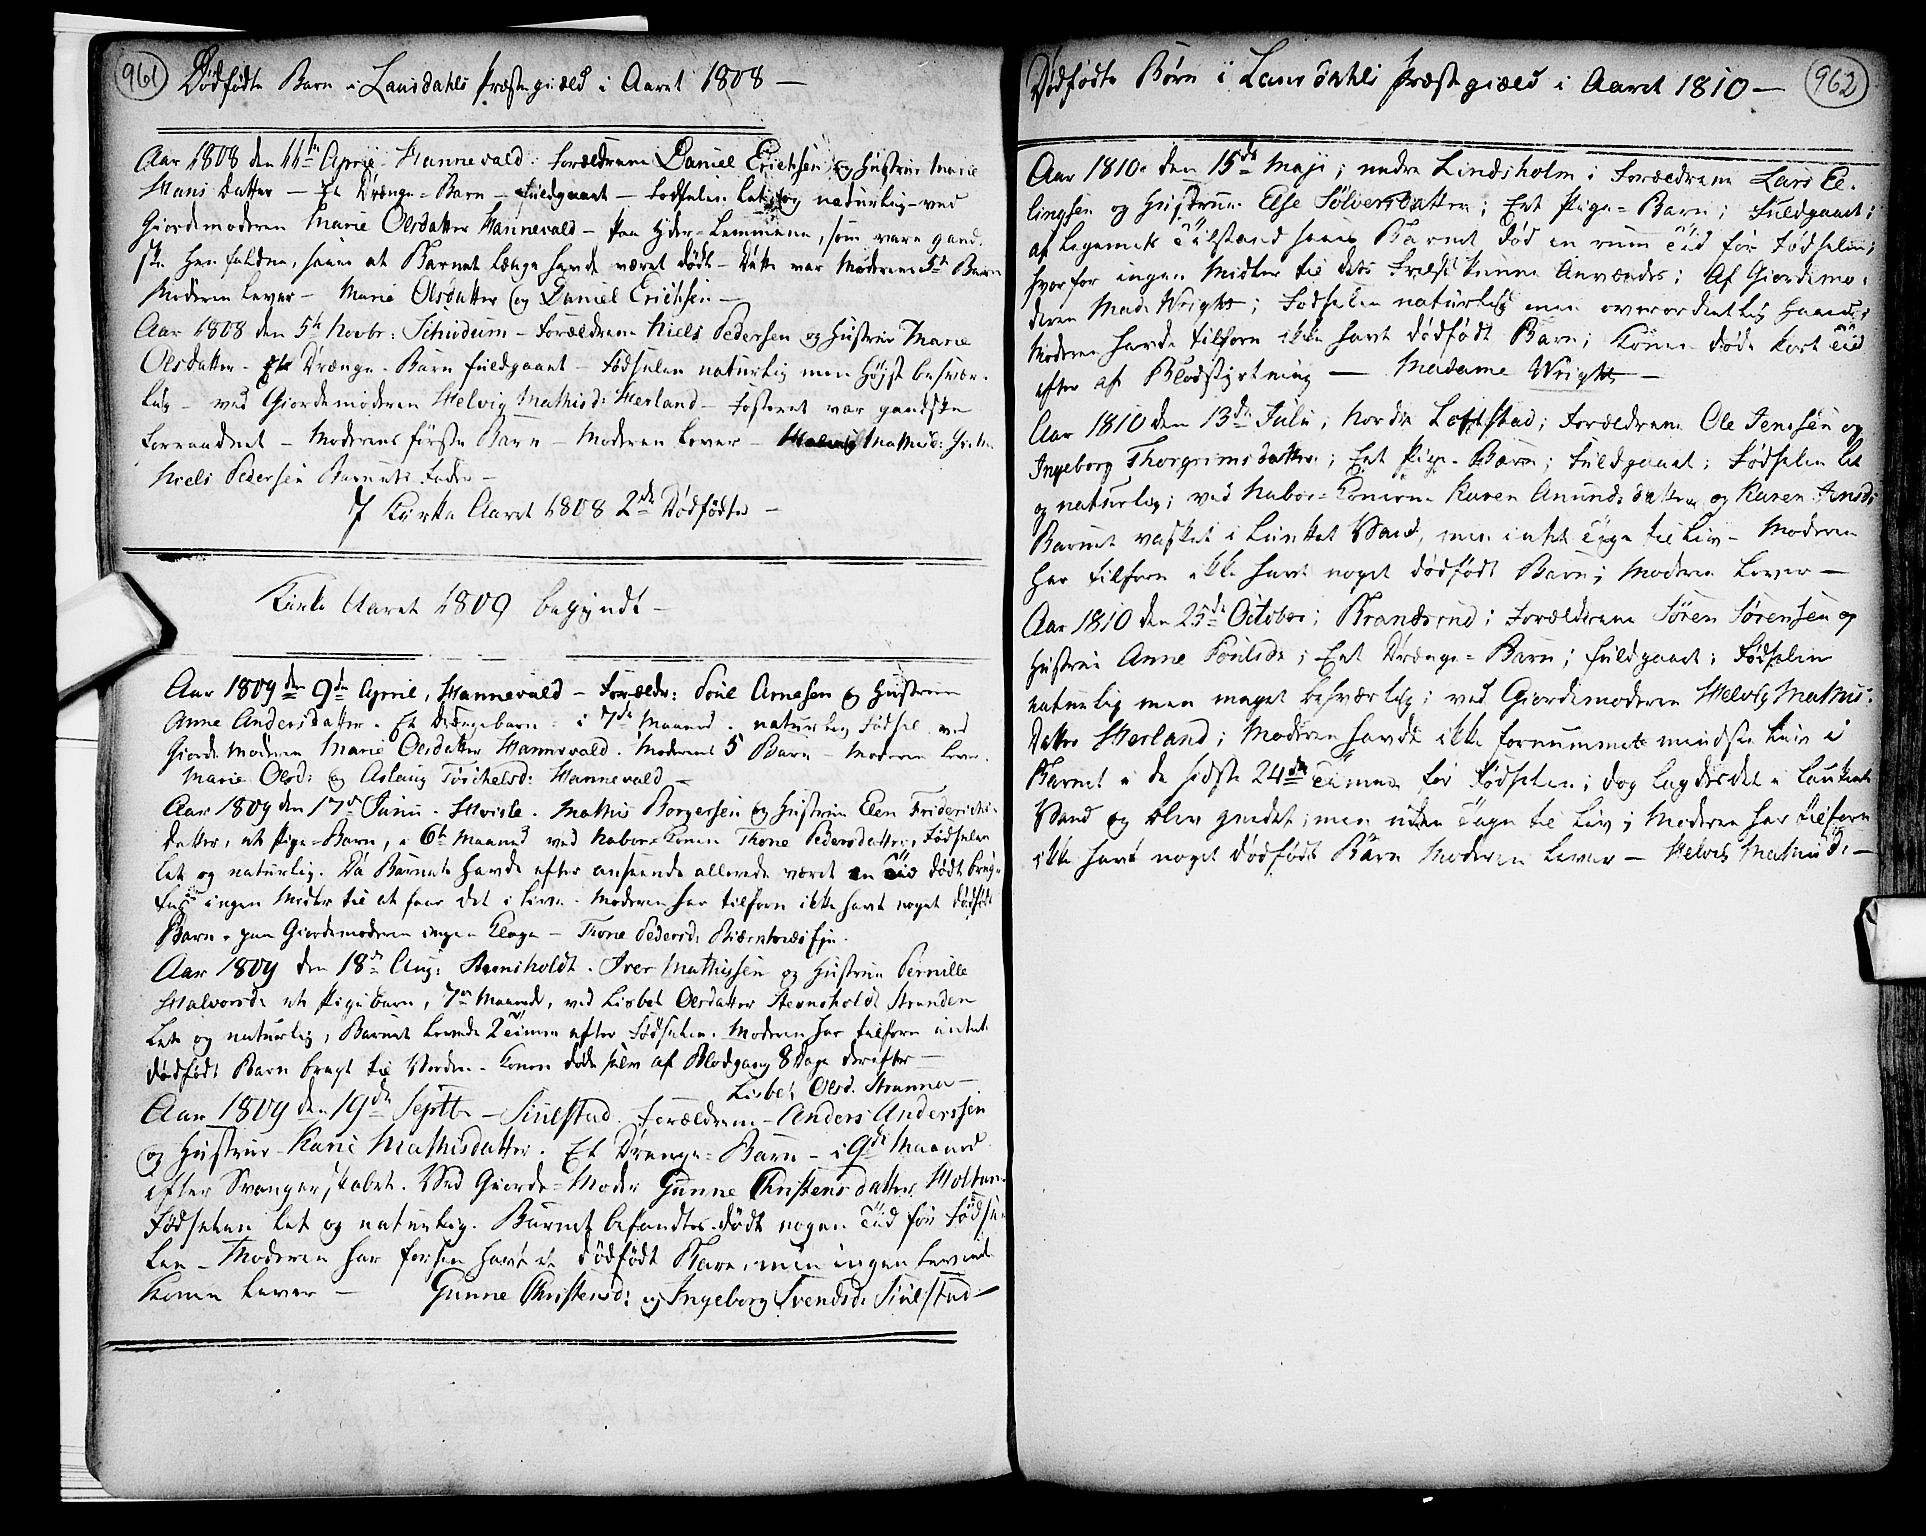 961
Dødfødte Børn i Laurdahls Præstegiæld i Aaret 1808 —
Aar 1808 den 11te April Hannevald: Forældrene Daniel Erichsen og Hustrue Marie
Hans Datter — Et Drænge-Barn — fuldgaaet — Fødselen let og naturlig — ved
Giordemoderen Marie Olesdatter Hannevald — paa Yder-Lemmene, som vare gand-
ske hen faldne, saaes at Barnet længe havde været dødt — Dette var Moderens 5te Barn
Moderen lever — Marie Olsdatter og Daniel Erichsen —
Aar 1808 den 5te Novbr: — Forældrene Niels Pedersen og Hustrue Marie
Olesdatter. Et Drænge-Barn fuldgaaet — Fødselen naturlig men høist besvær-
lig — ved Giordemoderen Helvig Mathisd: Herland — Fosteret var gandske
forraadnet — Moderens første Barn — Moderen lever — Helvig Mathisd:
Niels Pedersen Barnets Fader —
I Kirke Aaret 1808 2de Dødfødte —
Kirke Aaret 1809 begyndt —
Aar 1809 den 9de April, Hannevald — Forældr: Poul Arnesen og Hustrue
Anne Andersdatter. Et Drængebarn: i 7de Maaned. naturlig Fødsel ved
Giordemoderen Marie Olesdatter Hannevald. Moderens 5 Barn — Moderen lever.
Marie Olesd: og Aslaug Torchelsd: Hannevald —
Aar 1809 den 17de Junii. Hvisle. Mathis Borgersen og Hustrue Elen Friderichs-
datter, et Pige-Barn, i 6te Maaned ved Nabor-Konen Thone Pedersdatter, Fødselen
let og naturlig. Da Barnet havde efter anseende allerede været en Tiid dødt brug-
tes ingen Midler til at faae det i Live. Moderen har tilforn ikke havt noget dødfødt
Barn. paa Giordemoderen ingen Klage — Thone Pedersd:
Aar 1809 den 18de Aug: Steensholdt. Iver Mathissen og Hustrue Pernille
Halvorsd: et Pigebarn, 7de Maaned, ved Lisbet Olesdatter Steensholdt Stranden
let og naturlig, Barnet levede 2 Timer efter Fødselen. Moderen har tilforn intet
dødfødt Barn bragt til Verden. Konen døde selv af Blodgang 8 Dage derefter —
Lisbet Olesd. Stranden —
Aar 1809 den 19de Septb — Siulstad. Forældrene — Anders Anderssen
og Hustrue Karie Mathisdatter. Et Drænge-Barn — i 9de Maaned
efter Svangerskabet. Ved Giorde-Moder Gunne Christensdatter Holtan.
Fødselen let og naturlig. Barnet befandtes dødt nogen Tiid før Fødse-
len — Moderen har forhen havt et dødfødt Barn, men ingen levende
Konen lever — Gunne Christensd: og Ingeborg Svendsd: Siulstad —
962
Dødfødte Børn i Laurdahls Præstegiæld i Aaret 1810 —
Aar 1810 den 15de Maji; nedre Lindsholm; Forældrene Lars El-
lingsen og Hustrue Else Sølversdatter; Eet Pige-Barn; fuldgaaet;
af Legemets Tilstand saaes Barnet død en rum Tiid før Fødselen;
hvorfor ingen Midler til dets Frelse kunne anvendes; Af Giordemo-
deren Mad: Wright; Fødselen naturlig men overordentlig haard;
Moderen havde tilforn ikke havt dødfødt Barn; Konen døde kort Tiid
efter af Blodstyrtning — Madame Wright —
Aar 1810 den 13de Julii; Nordre Loftstad; Forældrene Ole Jenssen og
Ingeborg Thorgrimsdatter; Eet Pige-Barn; fuldgaaet; Fødselen let
og naturlig; ved Nabor-Konerne Karen Anundsdatter og Karen Arnesd:
Barnet vasket i lunket Vand, men intet Tegn til Liv — Moderen
har tilforn ikke havt noget dødfødt Barn; Moderen lever —
Aar 1810 den 25de October; Brandsrud; Forældrene Søren Sørensen og
Hustrue Anne Poulsd:; Eet Drænge-Barn; fuldgaaet; Fødselen
naturlig men meget besværlig; ved Giordemoderen Helvig Mathis-
datter Herland; Moderen havde ikke fornummet mindste Liv i
Barnet i de sidste 24de Timer før Fødselen; dog lagdes det i lunket
Vand og blev gnedet; men uden Tegn til Liv; Moderen har tilforn
ikke havt noget dødfødt Barn Moderen lever — Helvig Mathisd: —